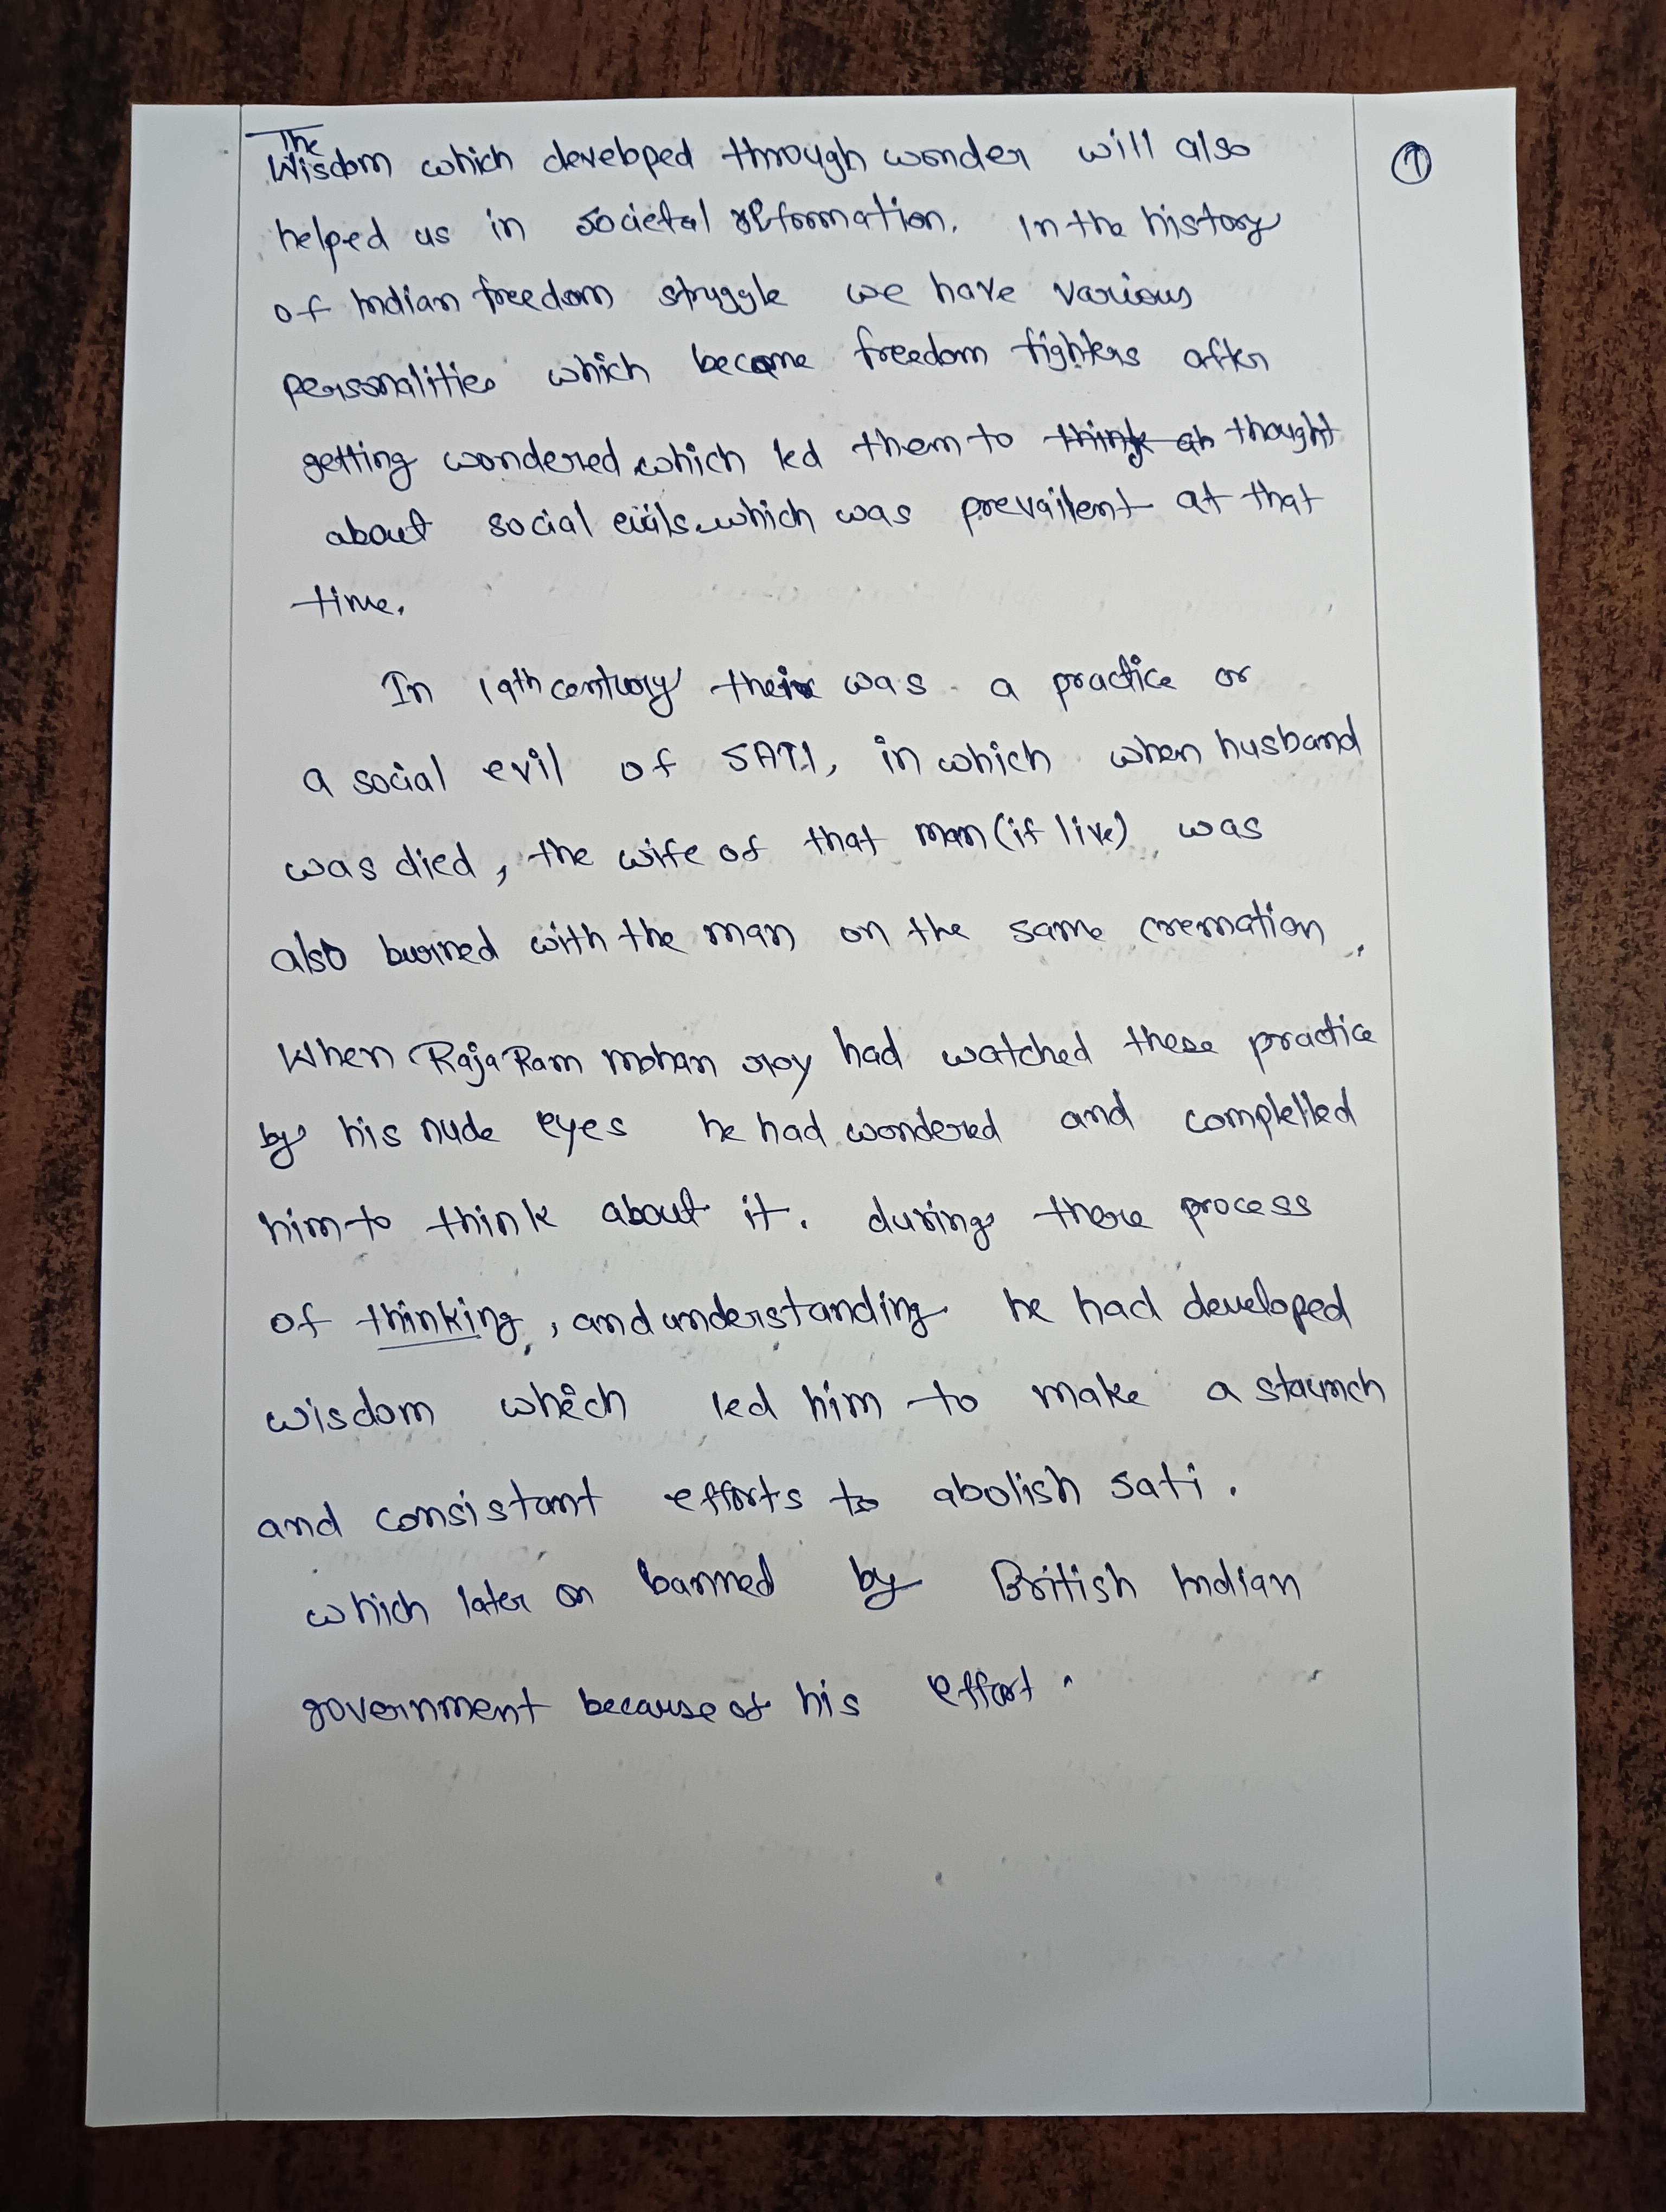 The
Wisdom which developed through wonder will also
helped us in societal reformation. In the history
of Indian freedom struggle we have various
personalities which become freedom fighters after
getting wondered which led them to think ab thought
about social evils which was prevailent at that
time.
In 19th century their was a practice or
a social evil of SATI, in which when husband
was died, the wife of that man (if live) was
also burned with the man on the same cremation.
When Raja Ram mohan roy had watched these practice
by his nude eyes he had wondered and complelled
him to think about it. during these process
of thinking, and understanding he had developed
wisdom which led him to make a staunch
and consistant efforts to abolish sati.
which later on banned by British Indian
government because of his effort.